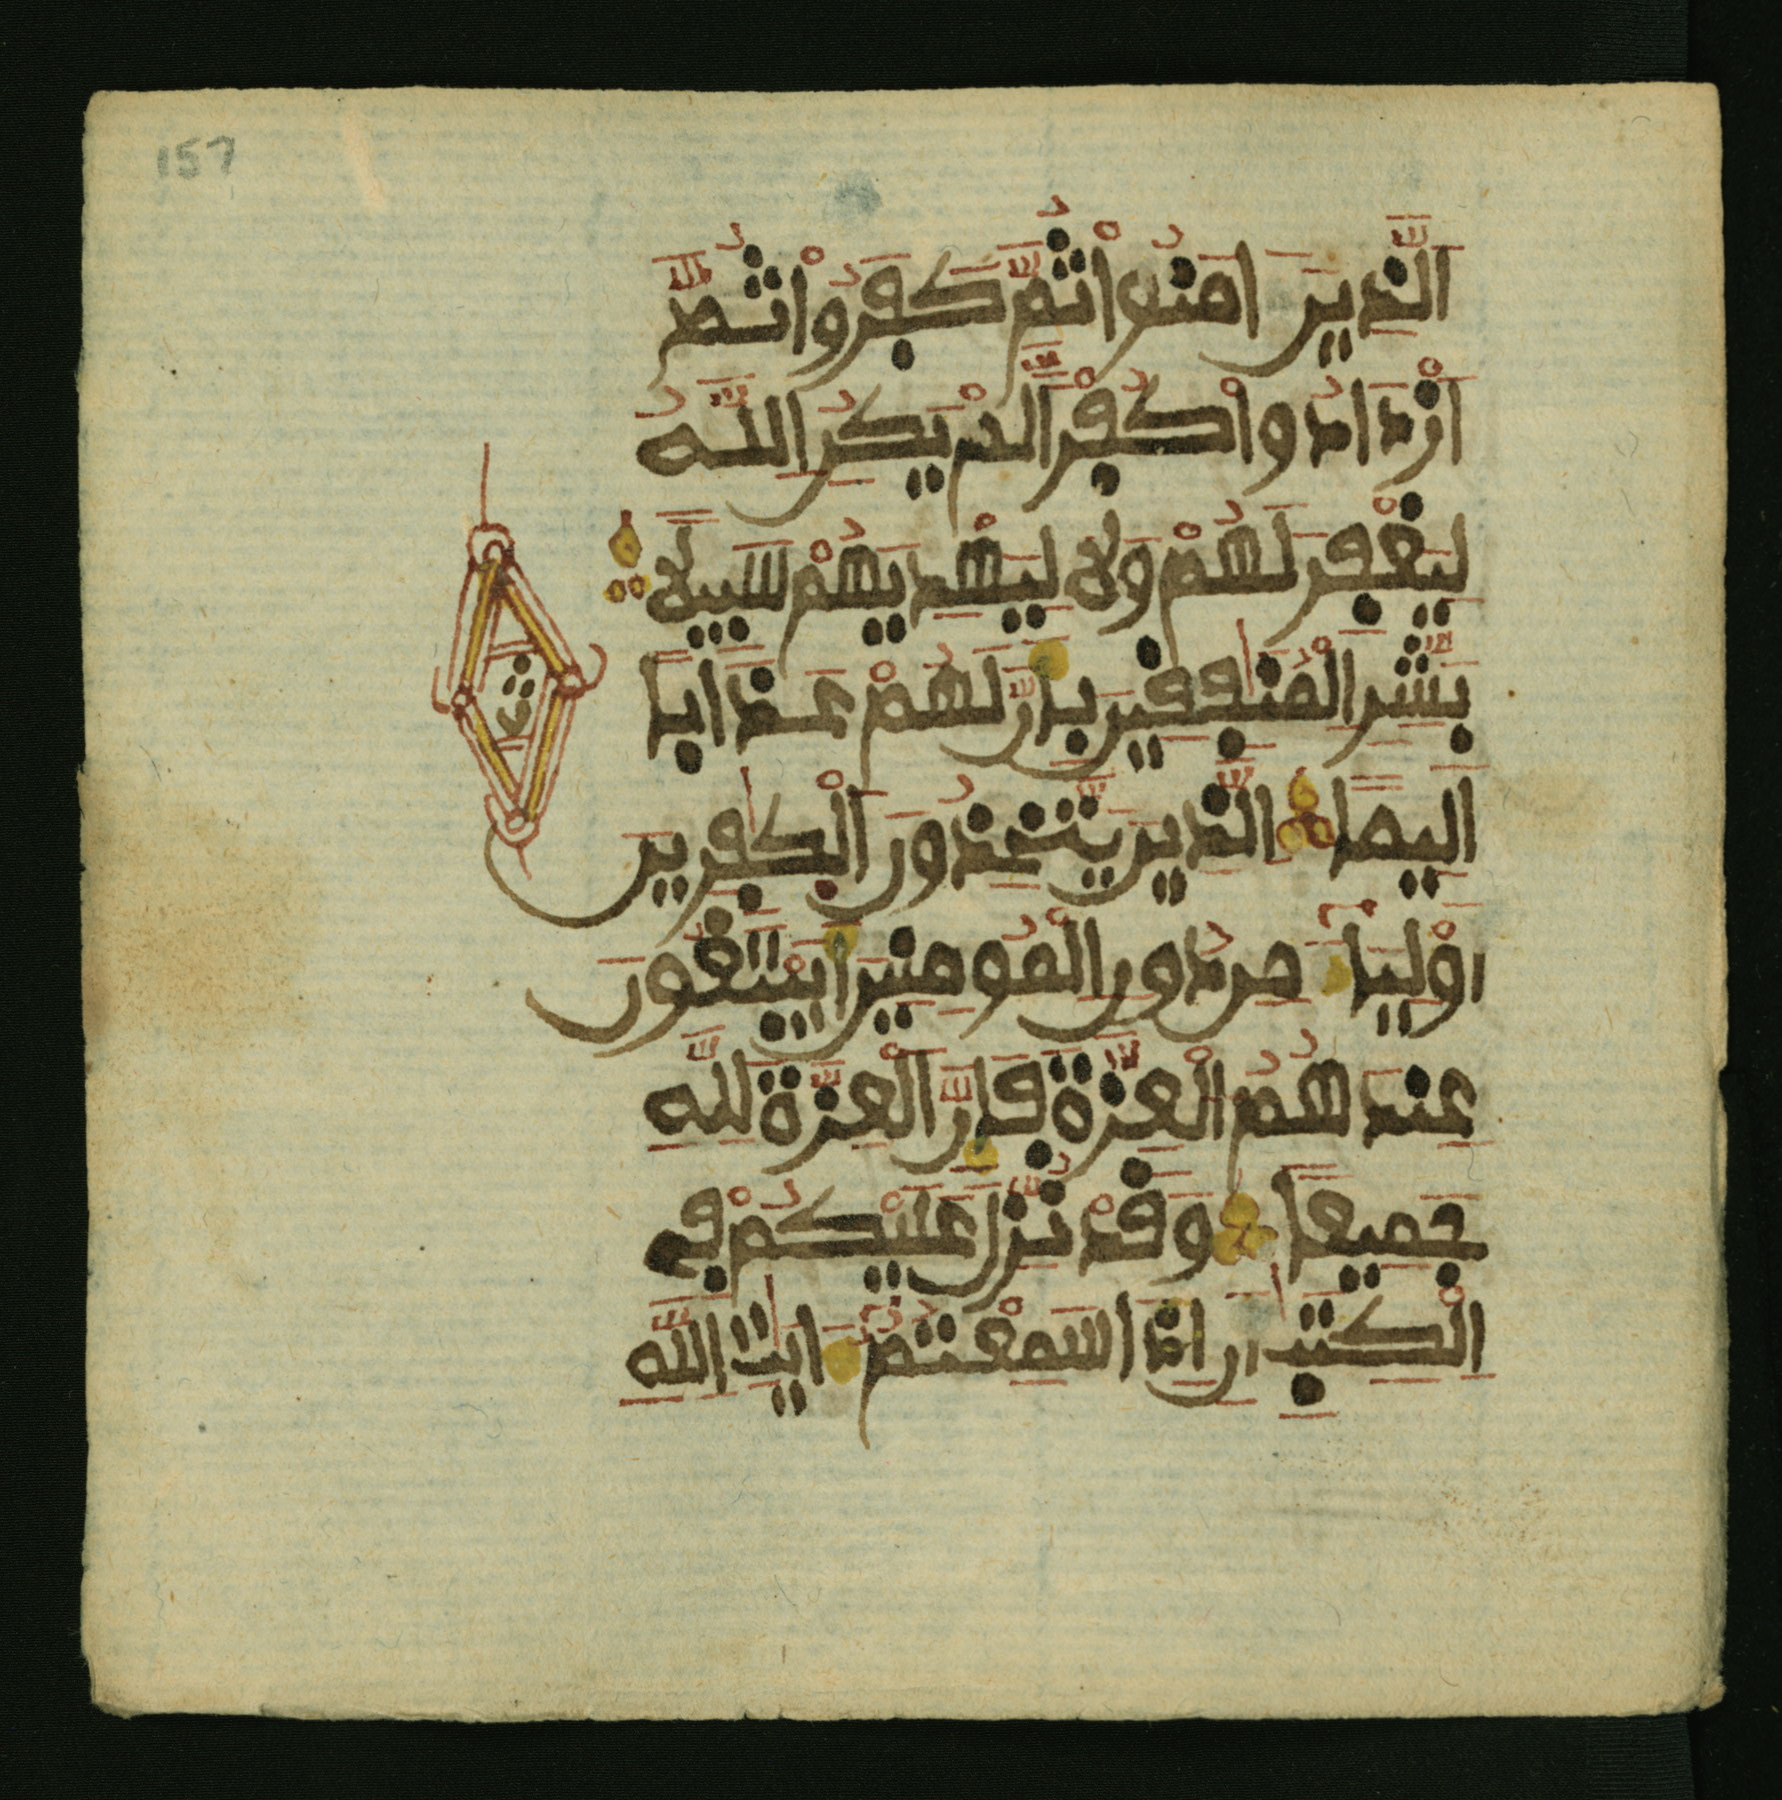 157
الذين امنوا ثم كفروا ثم
ازدادوا كفرا لم يكن الله
ليغفر لهم ولا ليهديهم سبيلا
بشر المنفقين بان لهم عذابا
اليما الذين يتخذون الكفرين
اولياء من دون المومنين ايبتغون
عندهم العزة فان العزة لله
جميعا وقد نزل عليكم في
الكتب ان اذا سمعتم ايت الله